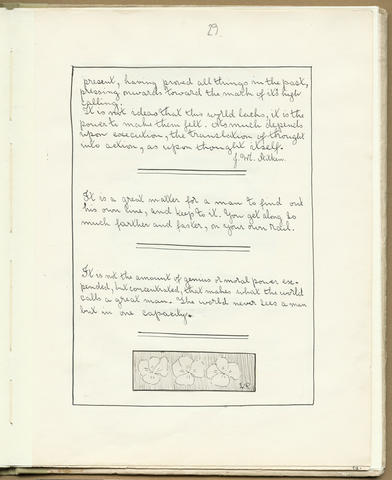 29.
present, having proved all things in the past,
pressing onwards toward the mark of it's high
calling.
It is not ideas that this world lacks, it is the
power to make them felt. As much depends
upon execution, the translation of thought
into action, as upon thought itself.
It is a great matter for a man to find out
his own line, and keep to it. You get along so
much farther and faster, on your own rail.
It is not the amount of genius or moral power ex-
pended, but concentrated, that makes what the world
calls a great man. The world never sees a man
but in one capacity.